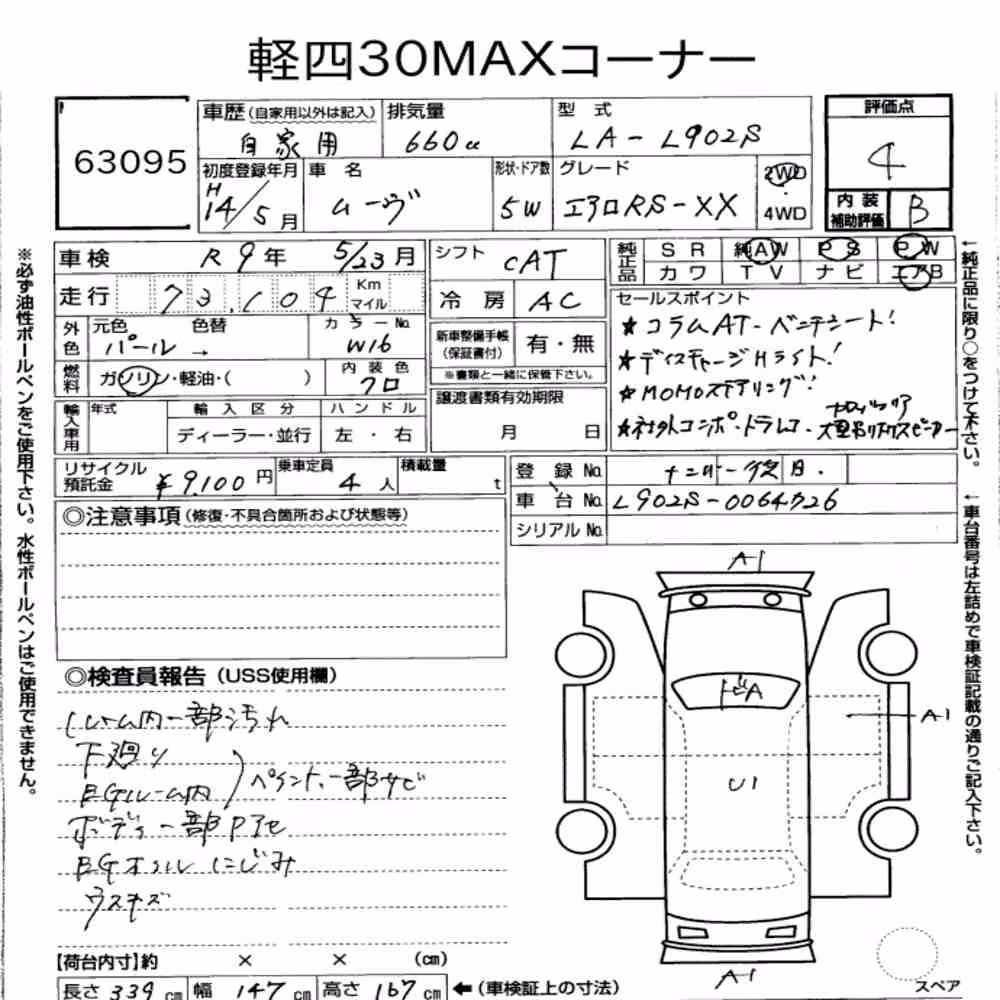 軽四30MAXコーナー
63095
車歴(自家用以外は記入) 排気量 型式
自家用 660cc LA-L902S
初度登録年月 車名 形状・ドア数 グレード 2WD・4WD
H14/5月 ムーヴ 5W エアロRS-XX
評価点
4
内装補助評価 B
車検 R9年 5/23月
走行 73,104 Km マイル
外色 元色 色替 カラーNo.
パール → W16
燃料 ガソリン・軽油・( ) 内装色 クロ
輸入車用 年式 輸入区分 ハンドル
ディーラー・並行 左・右
シフト CAT
冷房 AC
新車整備手帳(保証書付) 有・無
※書類と一緒に保管下さい。
譲渡書類有効期限
月 日
純正品 SR 純AW PS PW
カワ TV ナビ エアB
セールスポイント
★コラムAT-ベンチシート!
★ディスチャージHライト!
★MOMOステアリング!
★社外コンポ・ドラレコ・
リサイクル預託金 ¥9,100円 乗車定員 4人 積載量 t
登録No. ナンバー後日.
車台No. L902S-0064726
シリアルNo.
◎注意事項(修復・不具合箇所および状態等)
◎検査員報告(USS使用欄)
ルーム内一部汚れ
下廻り
EGルーム内
ペイント、一部サビ
ボディー一部Pアセ
EGオイルにじみ
ウスキズ
A1
ドビA
A1
U1
A1
スペア
【荷台内寸】約 × × (cm)
長さ 339cm 幅 147cm 高さ 167cm ←(車検証上の寸法)
※必ず油性ボールペンをご使用下さい。水性ボールペンはご使用できません。
←純正品に限り○をつけて下さい。
←車台番号は左詰めで車検証記載の通りご記入下さい。